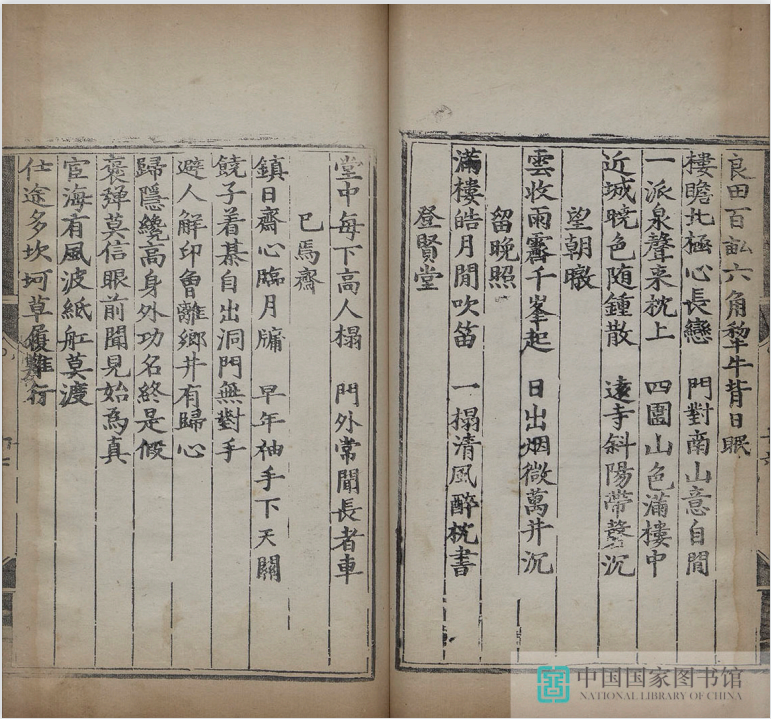 良田百畝六角犂牛背日眠
樓瞻北極心長戀　門對南山意自閒
一派泉聲来枕上　四圍山色滿樓中
近城曉色随鍾散　遠寺斜陽帶磬沉
望朝暾
雲收雨霽千峯起　日出烟微萬井沉
留晚照
滿樓皓月閒吹笛　一榻清風醉枕書
登賢堂
堂中每下高人榻　門外常聞長者車
巳焉齋
鎮日齋心臨月牖　早年袖手下天關
饒子着棊自出洞門無對手
避人解印魯離鄉井有歸心
歸隱纔高身外功名終是假
褒殫莫信眼前聞見始為真
宦海有風波紙舡莫渡
仕途多坎坷草履難行
中国国家图书馆
NATIONAL LIBRARY OF CHINA